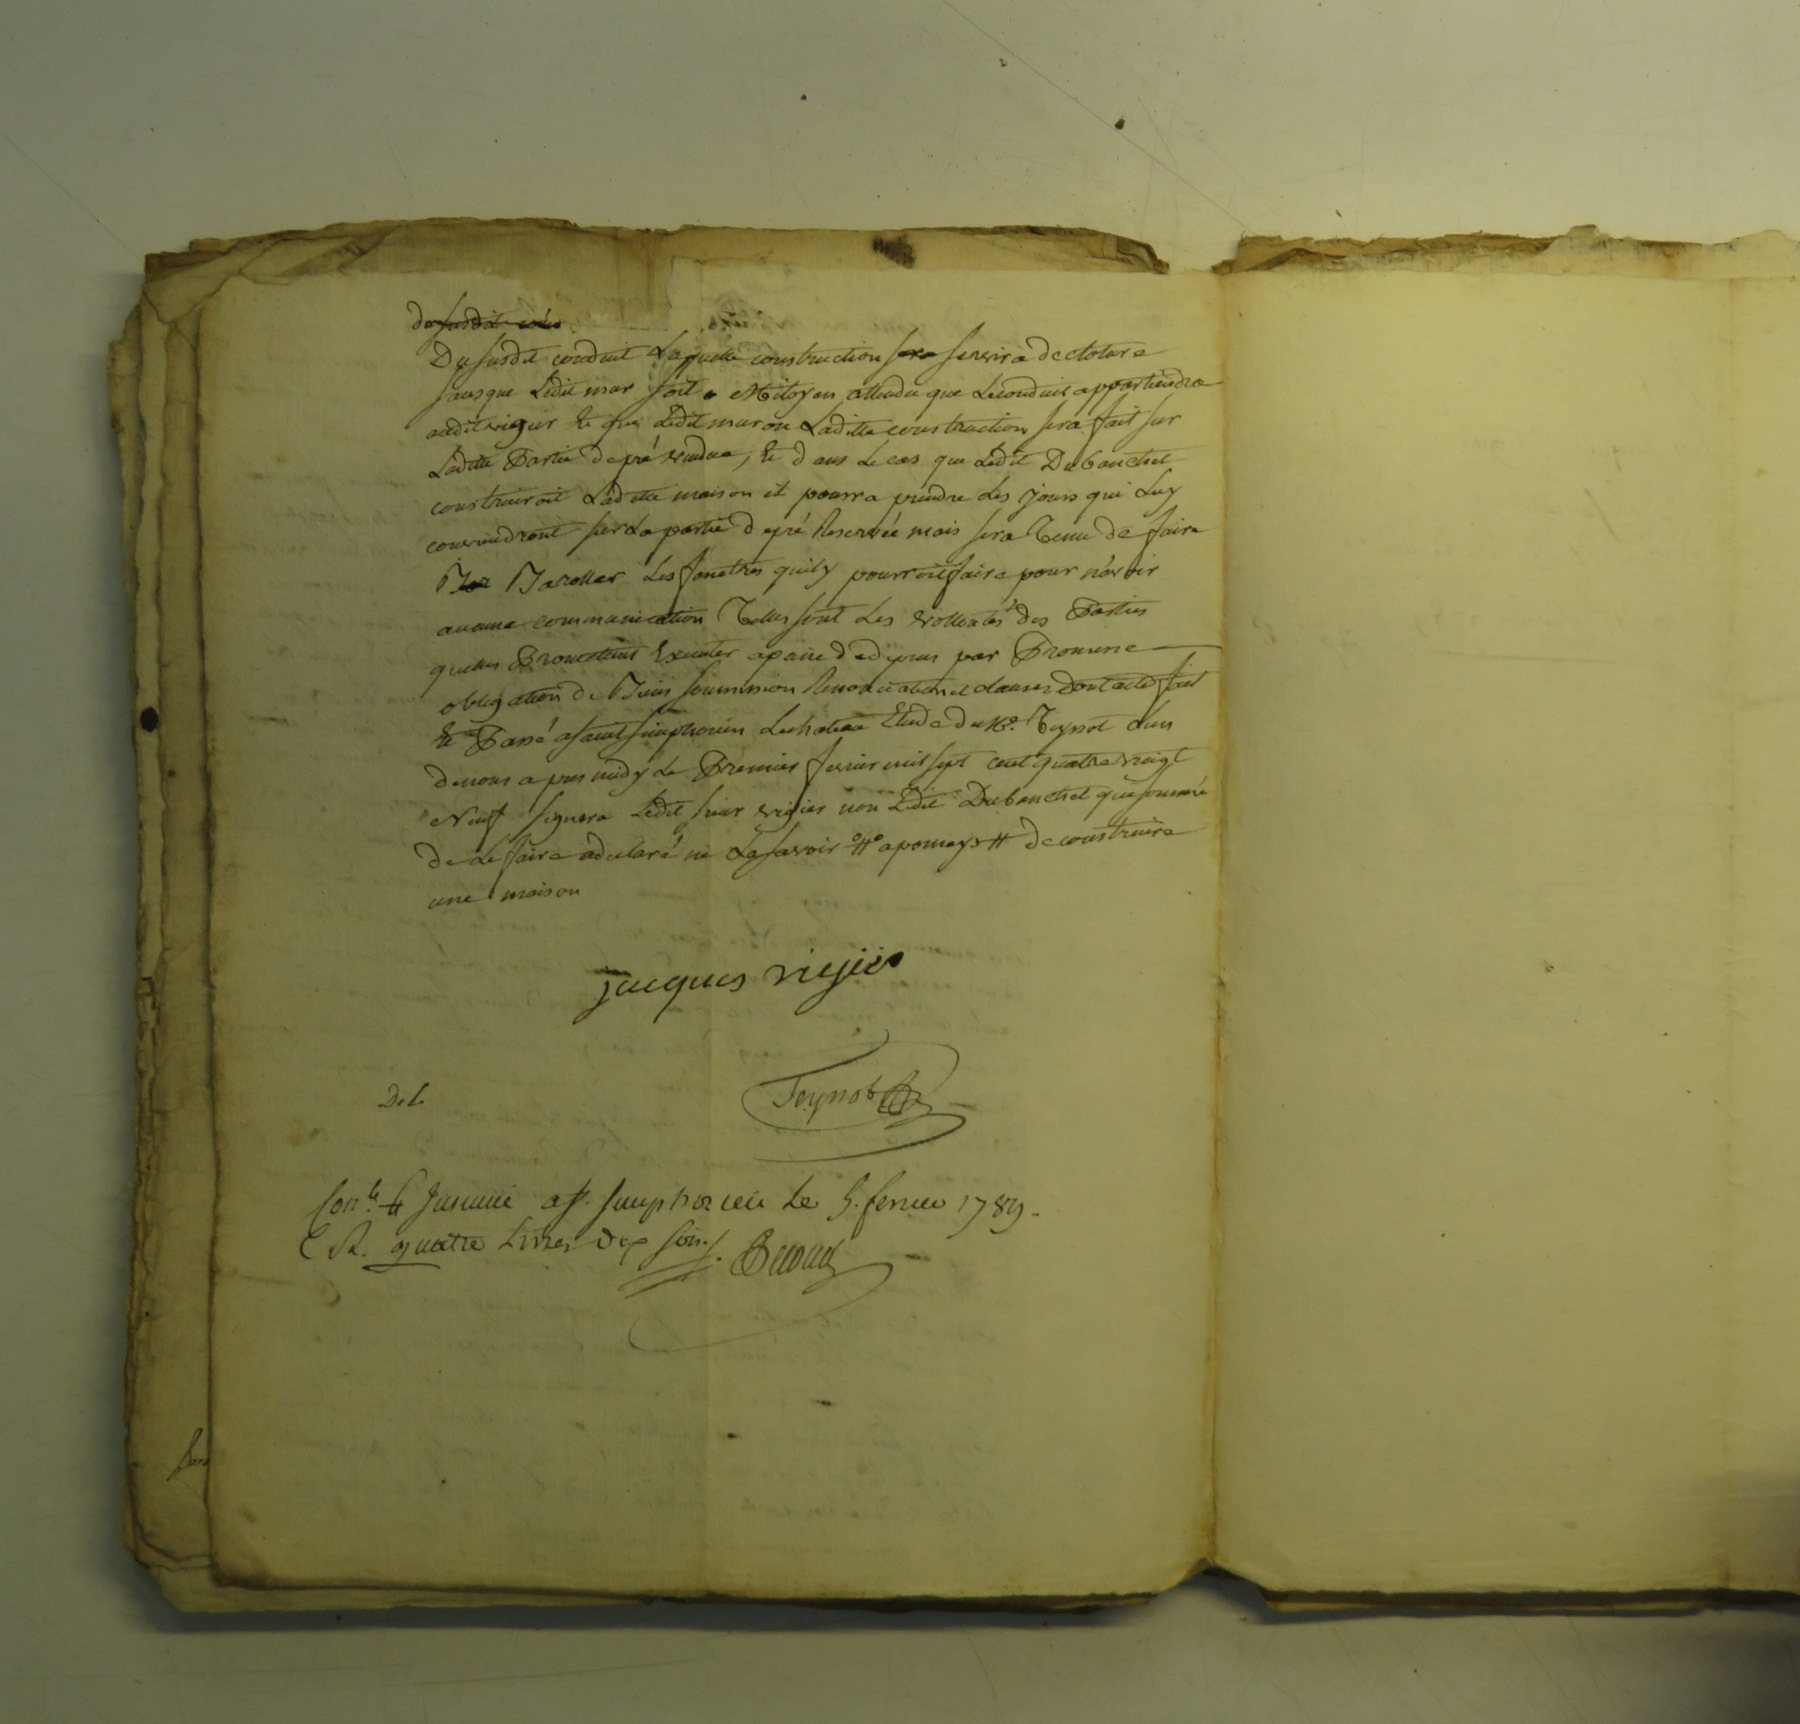 du susdit
Du susdit conduit Laquelle construction sera servira de cloture
sans que Ledit mur soit Mitoyen attendu que Leconduit appartiendra
audit vigier & que Ledit mur ou Laditte construction sera fait sur
Laditte Partie de pré vendue, & dans Le cas que Ledit Dubanchet
construiroit Laditte maison il pourra prendre Les jours qui Luy
conviendront sur La partie de pré Reservée mais sera Tenu de faire
Bar Baroller Les fenetres qu'il y pourroit faire pour n'avoir
aucune communication Telles sont Les vollontés des Parties
quelles Promettent Executer a paine de depens par Promesse
obligation de Biens soumission Renonciation et clauses Dont acte fait
& Passé a saint simphorien Lechateau Etude du Me. Teyssot Lun
de nous apres midy Le Premier fevrier mil sept cent quatre vingt
Neuf signera Ledit sieur vigier non Ledit Dubanchet que sommé
de Le faire a declaré ne Le savoir a pomeys # de construire
une maison
jacques vigier
Teyssot
Del.
Con.le & Insinué a St. simphorien Le 5. fevrier 1789.
R. quatre Livres dix sous